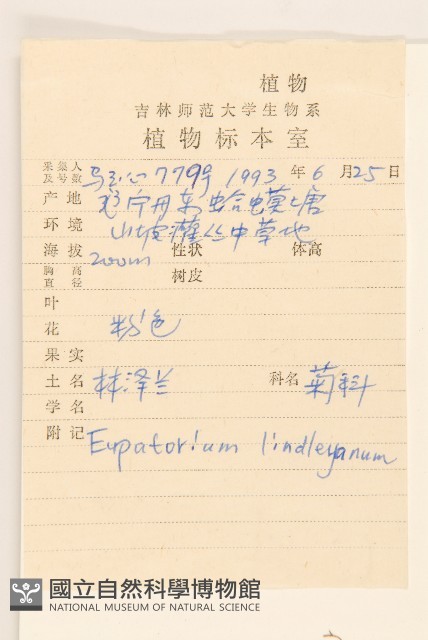 植物
吉林师范大学生物系
植物标本室
采集人及号数 马 779号 1993 年 6 月 25 日
产地 辽宁丹东 蛤蟆塘
环境 山坡灌丛中草地
海拔 200m 性状 体高
胸高直径 树皮
叶
花 粉色
果实
土名 林泽兰 科名 菊科
学名
附记 Eupatorium lindleyanum
國立自然科學博物館
NATIONAL MUSEUM OF NATURAL SCIENCE